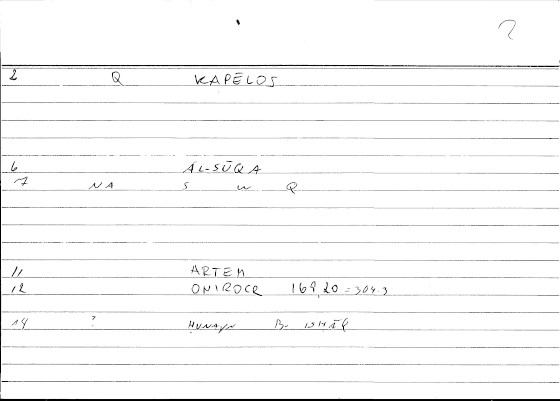 ?
2 Q KAPĒLOS
6 AL-SŪQA
7 NA S W Q
11 ARTEM
12 ONIROCR 169,20 = 304.3
14 ? ḤUNAYN B- ISḤĀQ